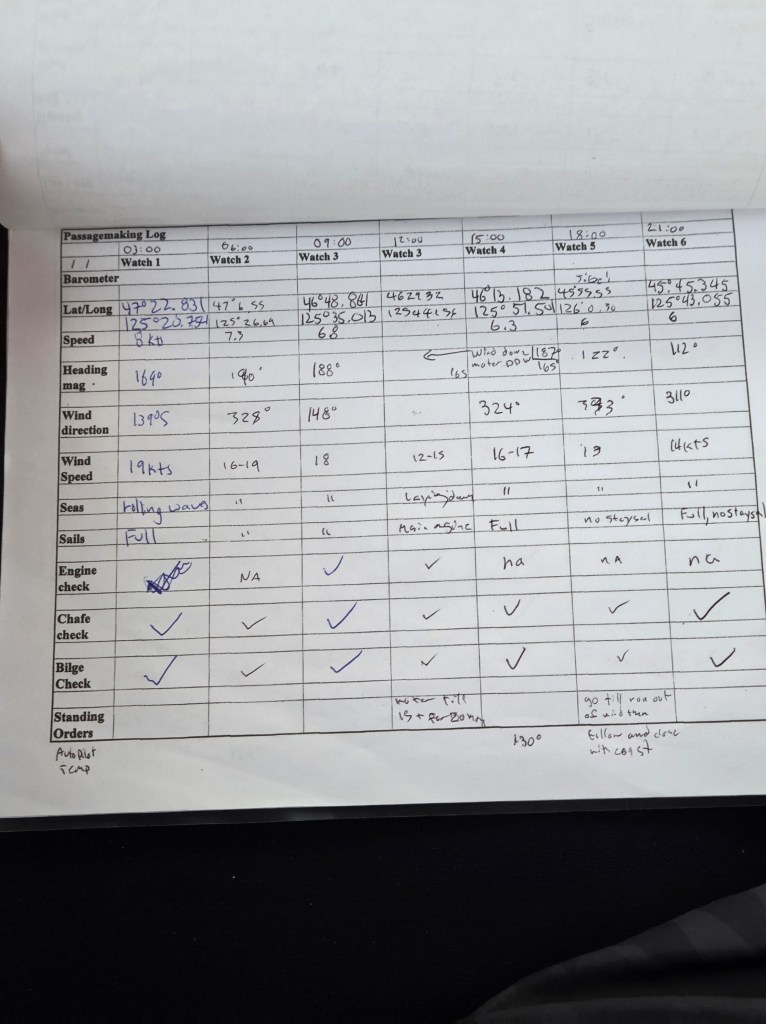 Passagemaking Log
03:00 06:00 09:00 12:00 15:00 18:00 21:00
/ / Watch 1 Watch 2 Watch 3 Watch 3 Watch 4 Watch 5 Watch 6
Barometer
Lat/Long 47°22.831 47°6.55 46°48.861 462932 46°13.182 455555 45°45.345
125°20.754 125°26.69 125°35.013 1254415 125°51.501 126°0.30 125°43.055
Speed 8 kts 7.3 6.8 6.3 6 6
Heading mag. 169° 190° 188° ← 165 187 165° 122° 112°
Wind direction 139°S 328° 148° - 324° 311°
Wind Speed 19 kts 16-19 18 12-15 16-17 19 14 kts
Seas rolling waves " " " " "
Sails Full " " Main engine Full no staysal Full, no staysal
Engine check NA ✓ ✓ na NA na
Chafe check ✓ ✓ ✓ ✓ ✓ ✓ ✓
Bilge Check ✓ ✓ ✓ ✓ ✓ ✓ ✓
Standing Orders go till run out
of wind then
follow and close
with coast